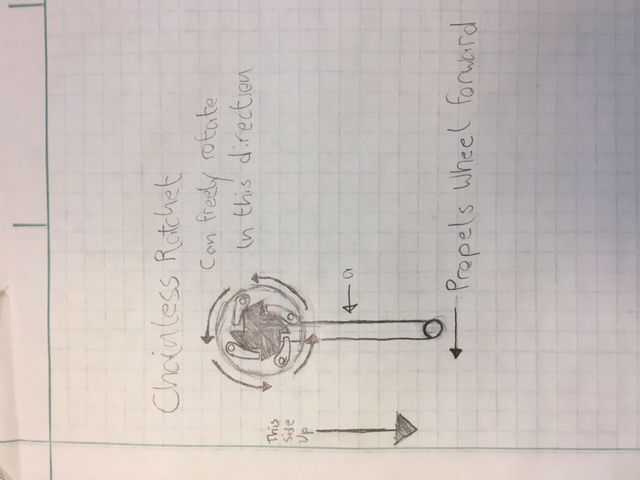 Chainless Ratchet
Can freely rotate
in this direction
This
side
Up
a
Propels Wheel forward